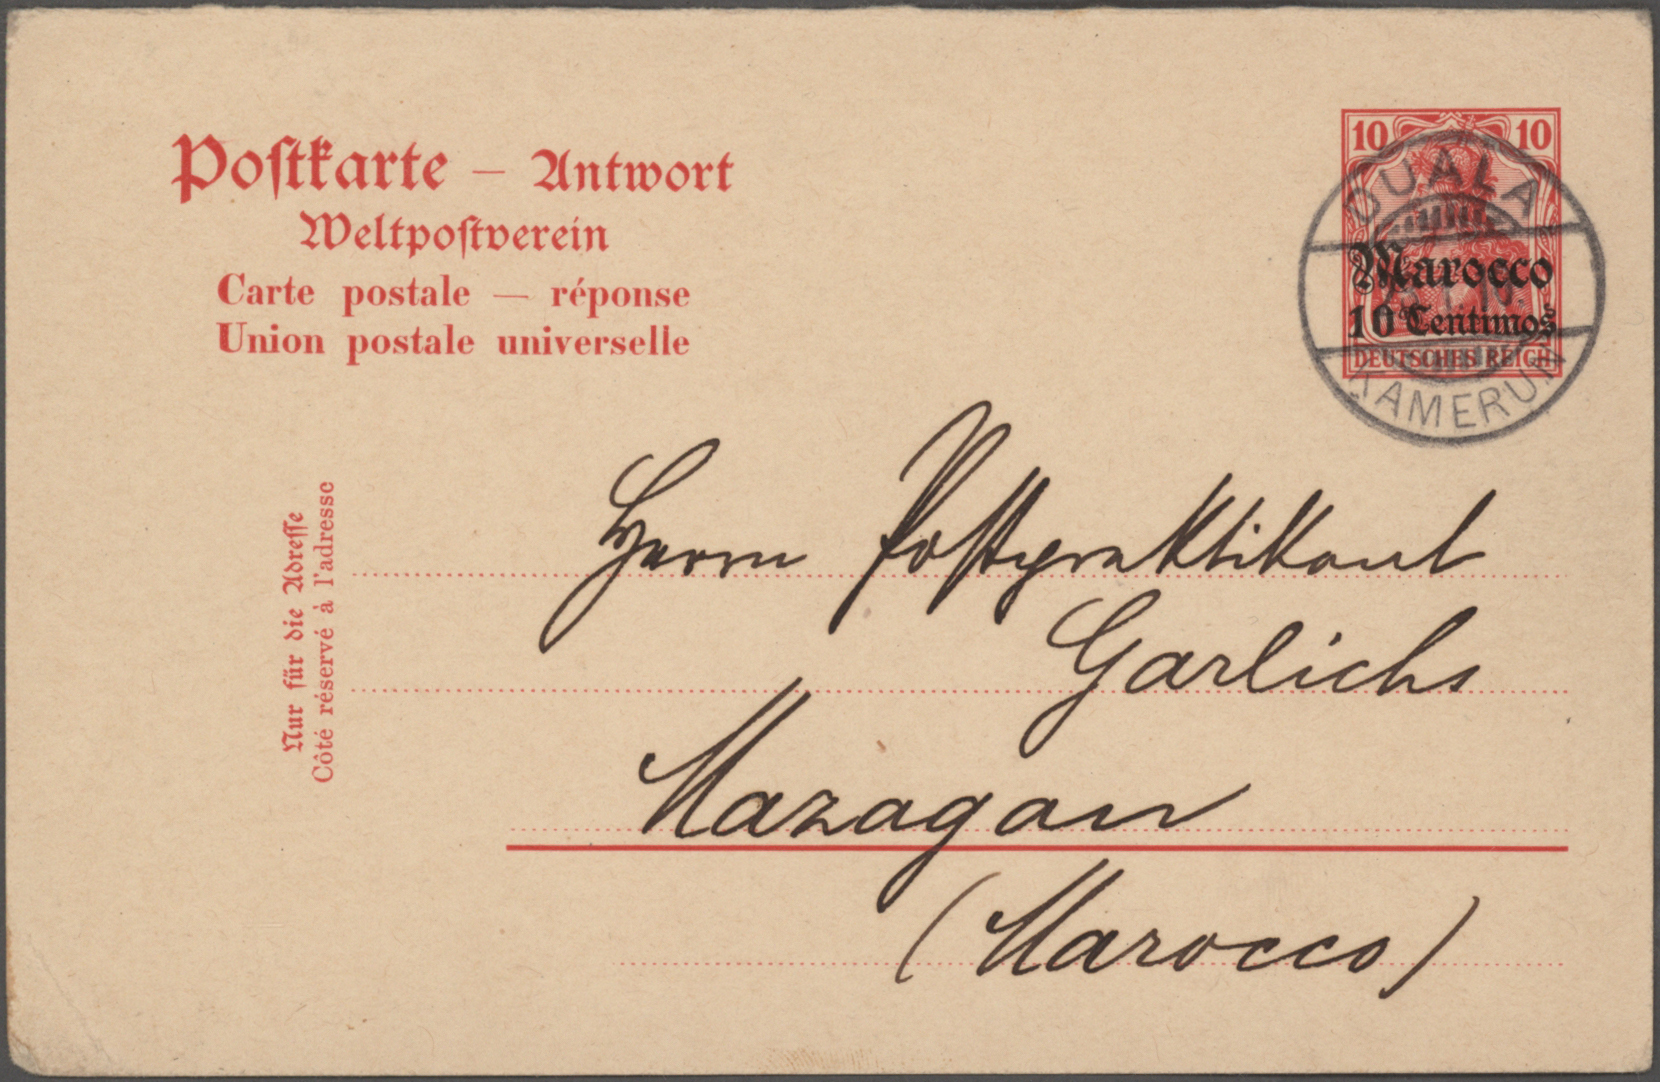 Postkarte – Antwort
Weltpostverein
Carte postale — réponse
Union postale universelle
10 10
Marocco
10 Centimos
DEUTSCHES REICH
DUALA
KAMERUN
Nur für die Adresse
Côté réservé à l'adresse
Herrn Postpraktikant
Garlichs
Mazagan
(Marocco)